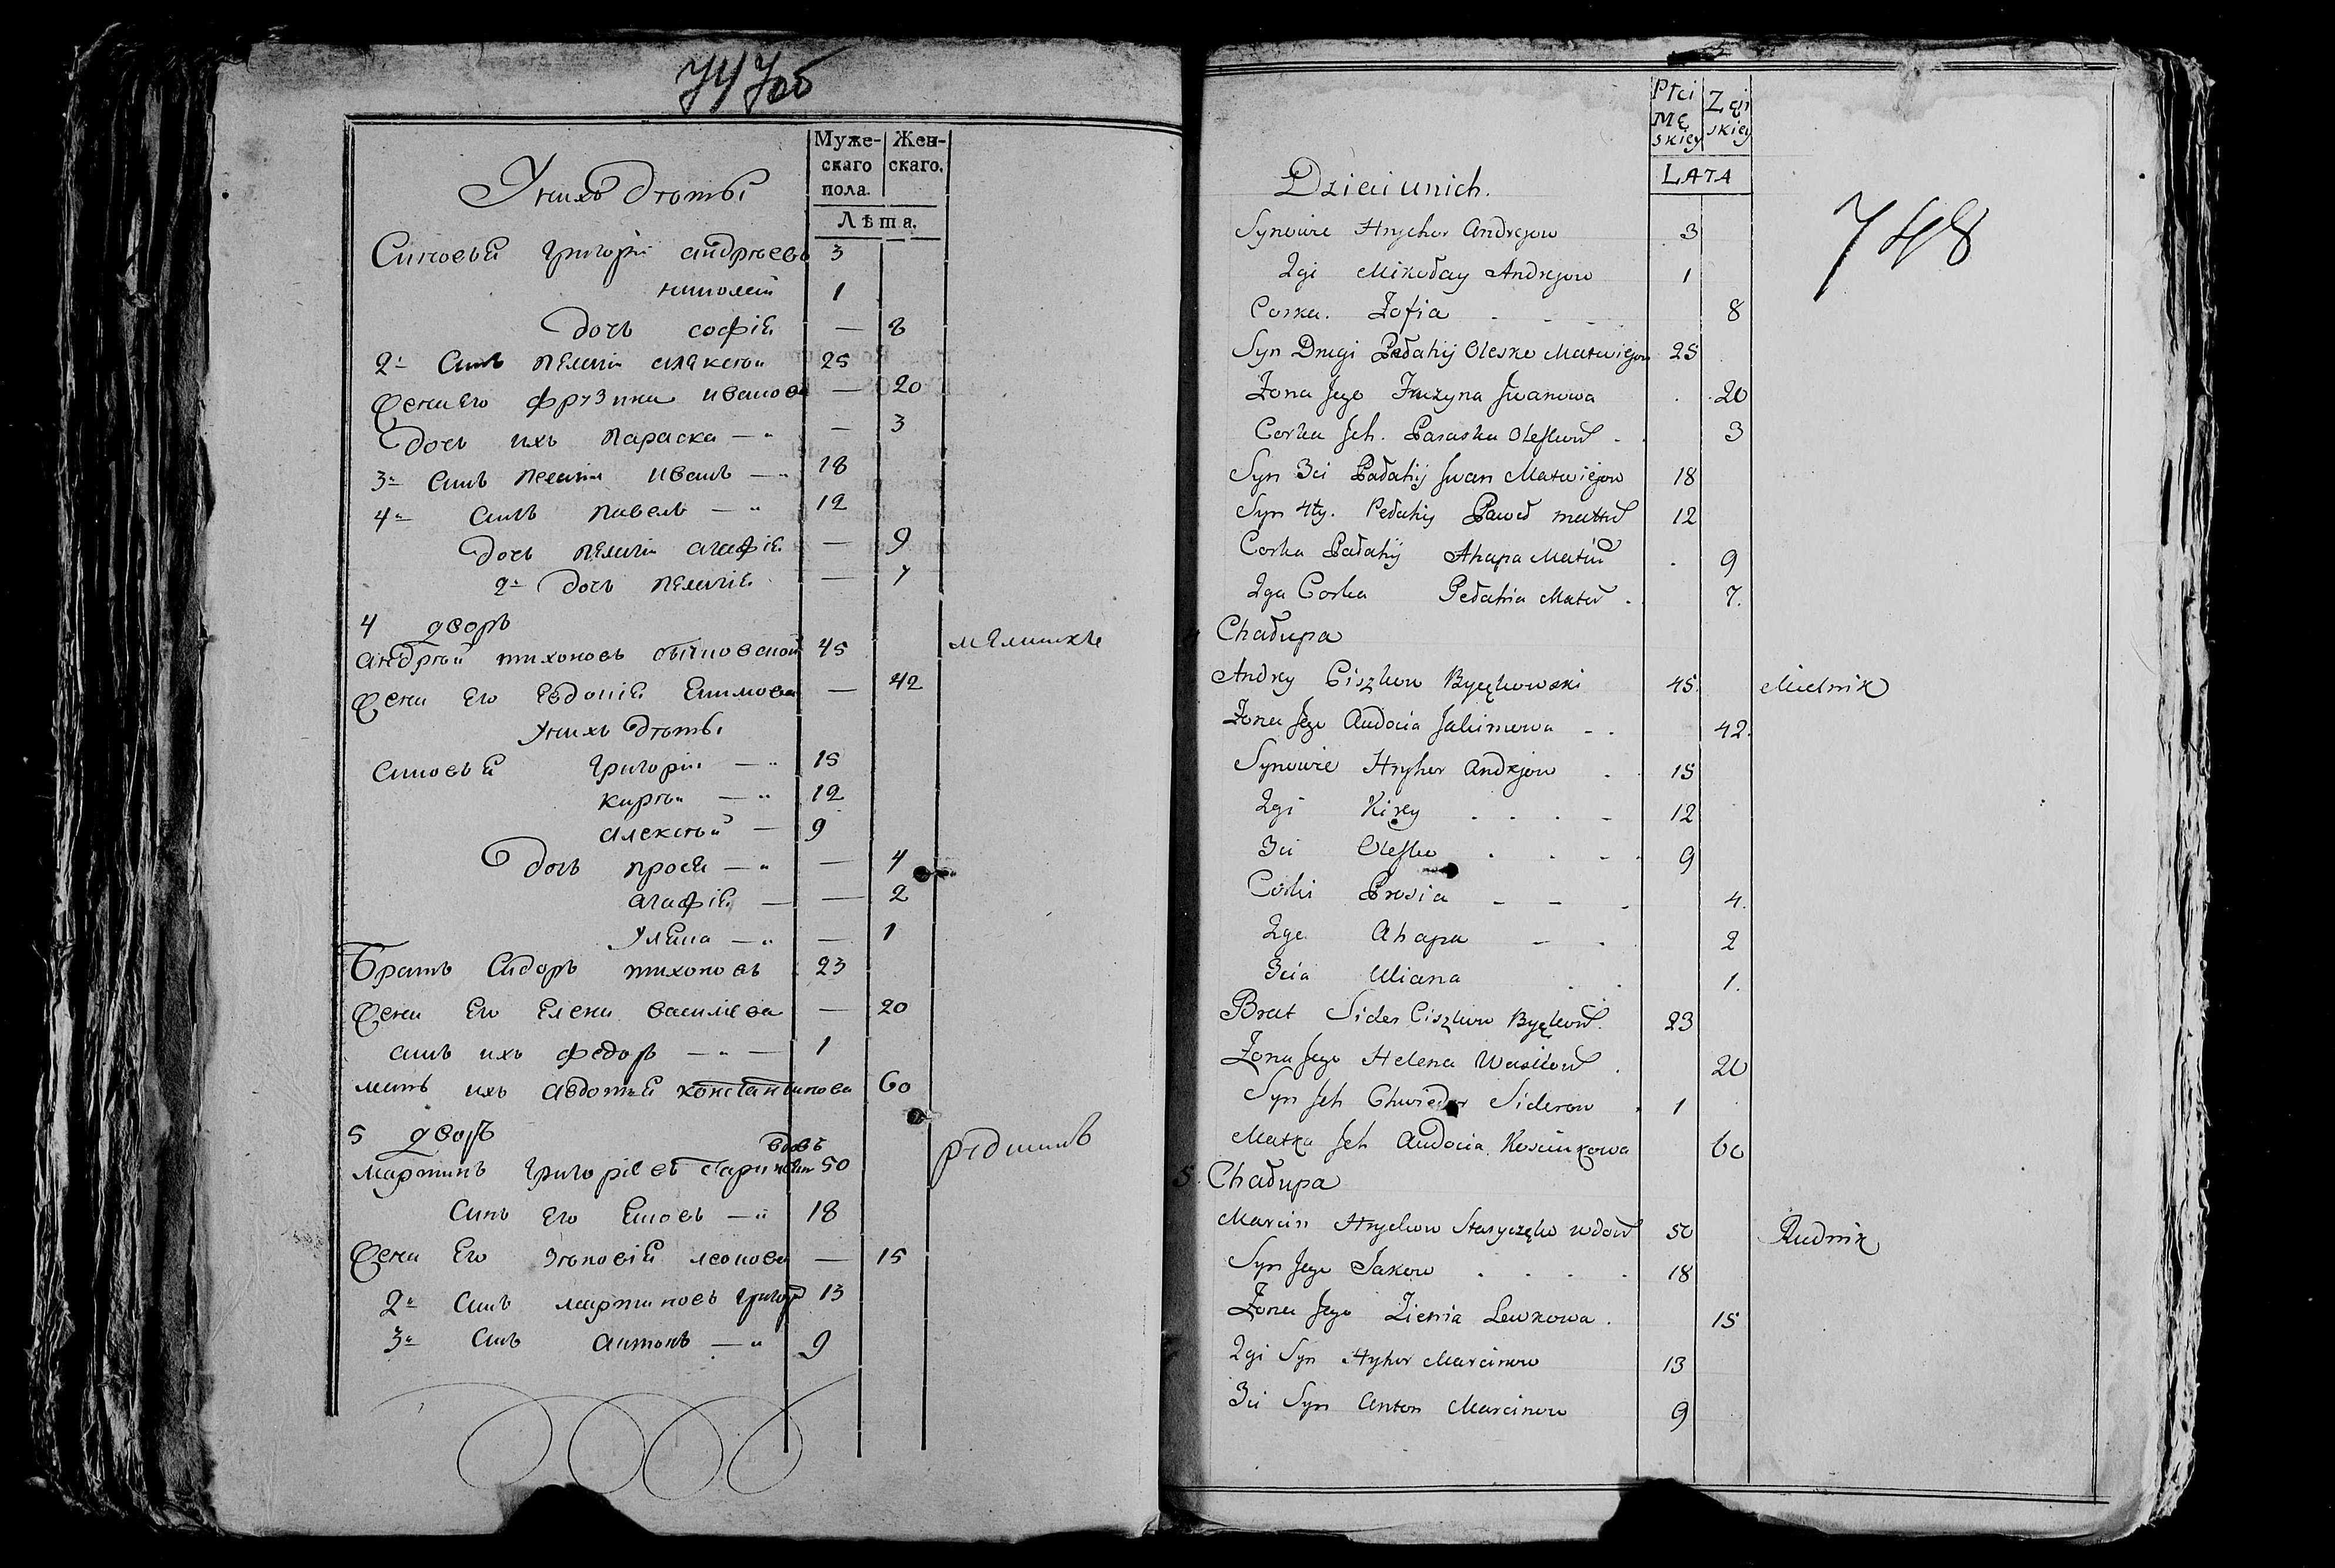 747об
Муже-
скаго
пола.
Жен-
скаго.
Лѣта.
Уних дѣти
Синовья Григорій Андрѣевъ 3
Николай 1
дочь Софія — 8
2й Синъ Пелагіи Алексѣй 25
Жена Его Фрузина Иванова — 20
дочь ихъ Параска — 3
3й Синъ Пелагіи Иванъ — 18
4й Синъ Павелъ — 12
дочь Пелагіи Агафія — 9
2я дочь Пелагія — 7
4 дворъ
Андрѣй Тихоновъ 45 Мѣлникъ
Жена Его Евдокія Екимова — 42
Уних дѣти
Синовья Григорій — 15
Кирѣй — 12
Алексѣй — 9
дочь Прося — 4
Агафія — — 2
Уляна — — 1
Братъ Сидоръ Тихоновъ 23
Жена Его Елена Василева — 20
Синъ ихъ Федоръ — 1
Мать ихъ Авдотья Константинова 60
5 дворъ
вдовъ
Мартинъ Григоріевъ 50 Рудникъ
Синъ Его Яковъ — 18
Жена Его Зѣновія Леонова — 15
2й Синъ Мартиновъ Григор 13
3й Синъ Антонъ — 9
Płci
Mę
skiey
Zęń
skiey
LATA
748
Dzieci unich.
Synowie Hrychor Andrejow 3
2gi Mikołay Andrejow 1
Corka. Zofia 8
Syn Drugi Pałahij Olesko Matwiejow 25
Zona Jego Fruzyna Jwanowa 20
Corka Jch. Paraska Oleskow 3
Syn 3ci Pałahij Jwan Matwiejow 18
Syn 4ty. Pełahij Paweł Matw 12
Corka Pałahij Ahapa Matw 9
2ga Corka Pełahia Matw 7.
4 Chałupa
Andrey Ciszkow Byczkowski 45. Mielnik
Zona Jego Audocia Jakimowa 42.
Synowie Hryhor Andrejow 15
2gi Kirey 12
3ci Olesko 9
Corki Prosia 4.
2ga Ahapa 2
3cia Uliana 1.
Brat Sider Ciszkow Byczkow. 23
Zona Jego Helena Wasilow 20
Syn Jch Chwiedor Siderow 1
Matka Jch Audocia Kosciukowa 60
5. Chałupa
Marcin Hrychow wdow 50 Rudnik
Syn Jego Jakow 18
Zona Jego Zienia Lewkowa. 15
2gi Syn Hyhor Marcinow 13
3ci Syn Anton Marcinow 9